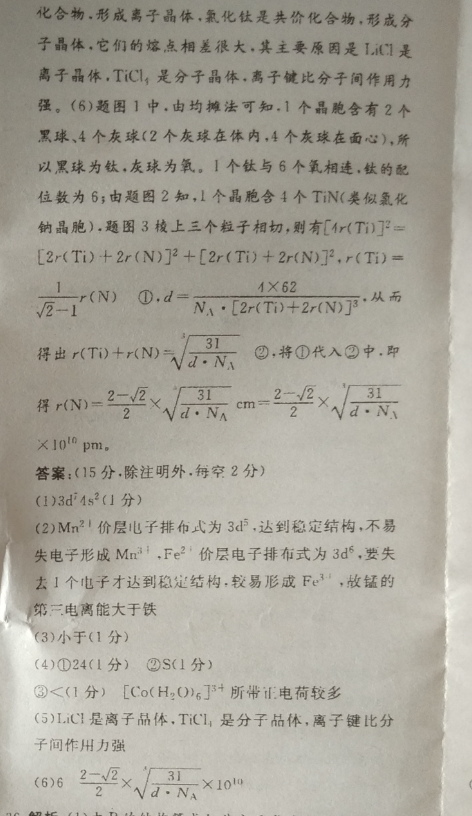 化合物,形成离子晶体,氯化钛是共价化合物,形成分
子晶体,它们的熔点相差很大,其主要原因是 LiCl 是
离子晶体,TiCl₄ 是分子晶体,离子键比分子间作用力
强。(6)题图 1 中,由均摊法可知,1 个晶胞含有 2 个
黑球、4 个灰球(2 个灰球在体内,4 个灰球在面心),所
以黑球为钛,灰球为氧。1 个钛与 6 个氧相连,钛的配
位数为 6;由题图 2 知,1 个晶胞含 4 个 TiN(类似氯化
钠晶胞),题图 3 棱上三个粒子相切,则有[4r(Ti)]²=
[2r(Ti)+2r(N)]²+[2r(Ti)+2r(N)]²,r(Ti)=
1/(√2-1) r(N) ①,d=4×62/(N_A·[2r(Ti)+2r(N)]³),从而
得出 r(Ti)+r(N)=³√(31/(d·N_A)) ②,将①代入②中,即
得 r(N)=(2-√2)/2×³√(31/(d·N_A)) cm=(2-√2)/2×³√(31/(d·N_A))
×10¹⁰ pm。
答案:(15 分,除注明外,每空 2 分)
(1)3d⁷4s²(1 分)
(2)Mn²⁺ 价层电子排布式为 3d⁵,达到稳定结构,不易
失电子形成 Mn³⁺,Fe²⁺ 价层电子排布式为 3d⁶,要失
去 1 个电子才达到稳定结构,较易形成 Fe³⁺,故锰的
第三电离能大于铁
(3)小于(1 分)
(4)①24(1 分) ②S(1 分)
③<(1 分) [Co(H₂O)₆]³⁺ 所带正电荷较多
(5)LiCl 是离子晶体,TiCl₄ 是分子晶体,离子键比分
子间作用力强
(6)6 (2-√2)/2×³√(31/(d·N_A))×10¹⁰